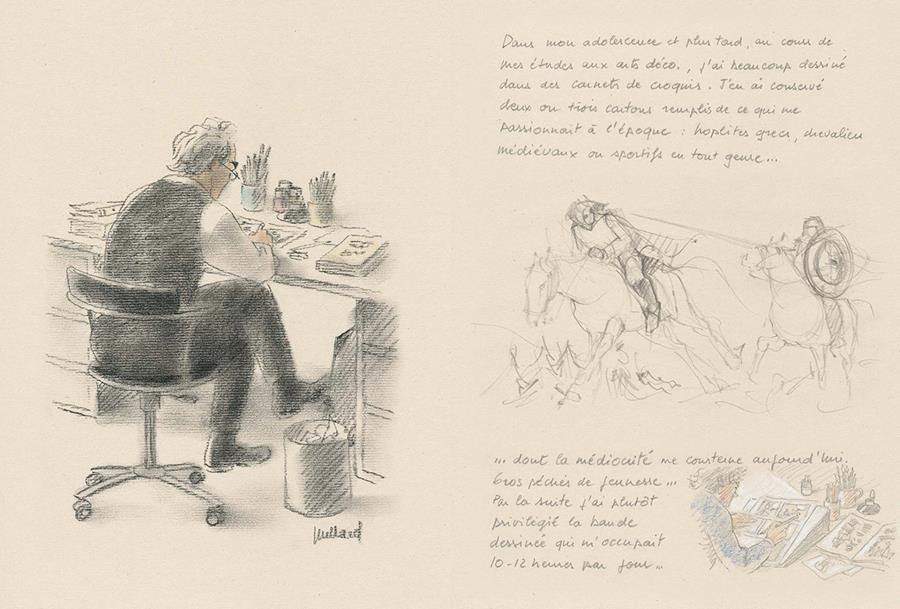 Dans mon adolescence et plus tard, au cours de
mes études aux arts déco., j'ai beaucoup dessiné
dans des carnets de croquis. J'en ai conservé
deux ou trois cartons remplis de ce qui me
passionnait à l'époque : hoplites grecs, chevaliers
médiévaux ou sportifs en tout genre...
... dont la médiocrité me consterne aujourd'hui.
Gros péchés de jeunesse...
Par la suite j'ai plutôt
privilégié la bande
dessinée qui m'occupait
10-12 heures par jour...
Juillard